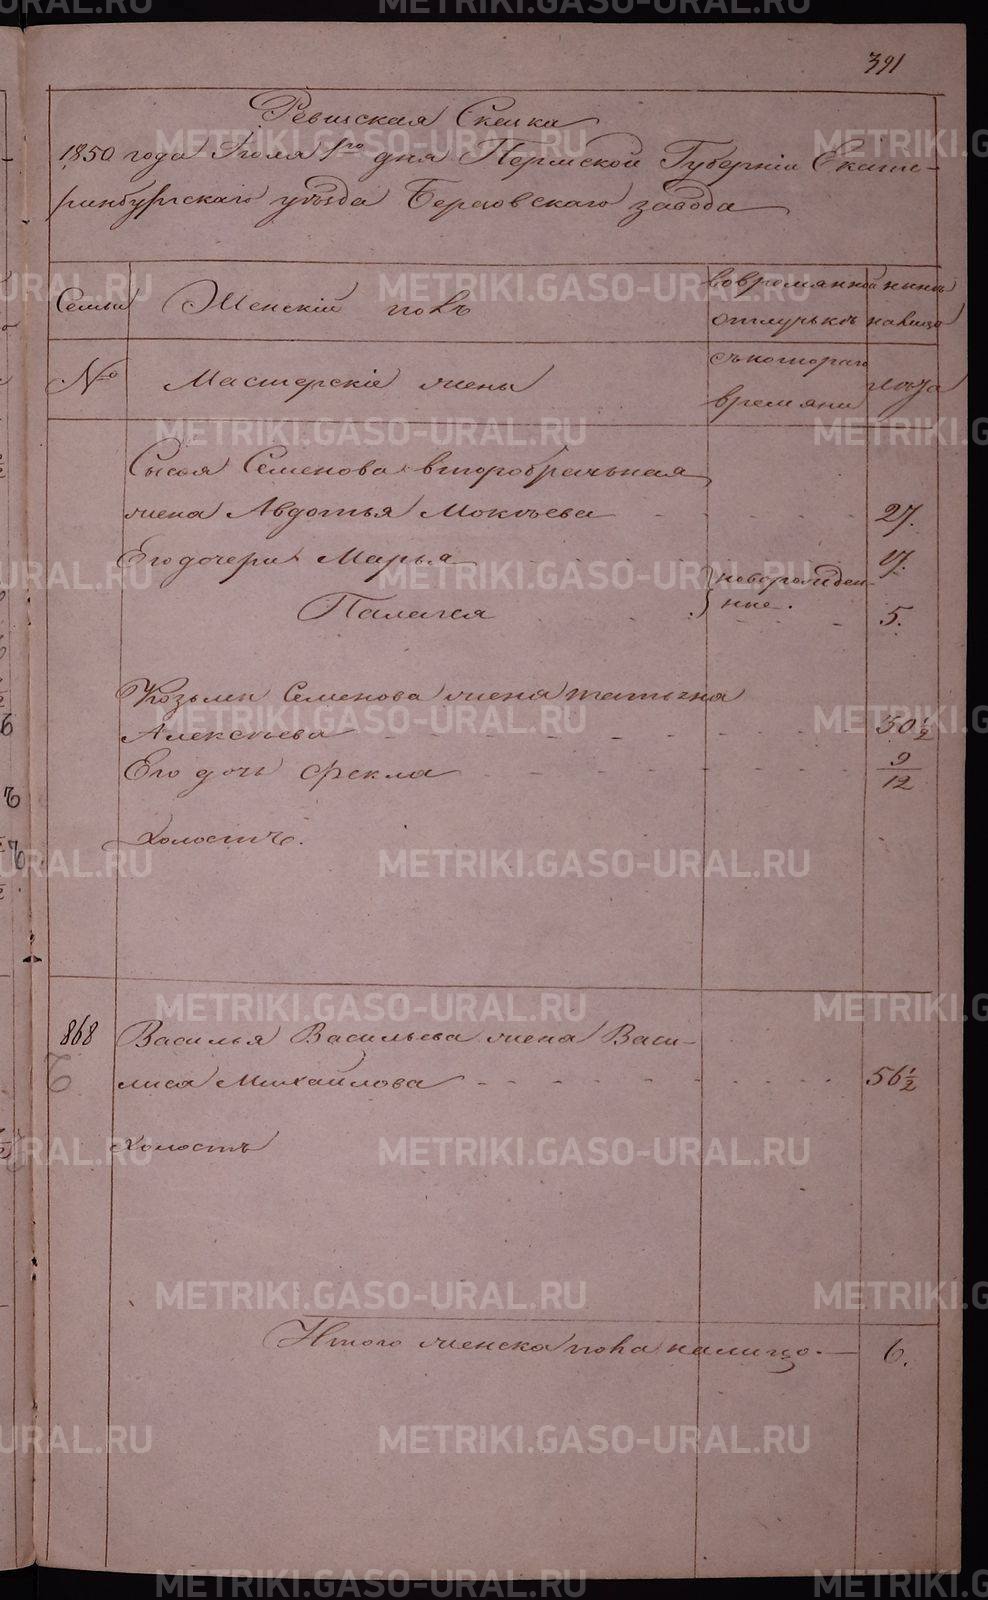 391
Ревизская Сказка
1850 года Июля 1го дня Пермской Губерніи Екате-
ринбургскаго уѣзда Березовскаго завода
Семьи
Женскій полъ
во временной отлучькѣ
нынѣ налицо
№
Мастерскіе жены
съ котораго времяни
лѣта
Сысоя Семенова второбрачьная
жена Авдотья Мокѣева 27.
Его дочери Марья 17.
новорожден-
ные.
Палагея 5.
Козьмы Семенова жена Татьяна
Алексѣева 30 1/2
Его дочь Фекла 9/12
Холостъ.
868 Василья Васильева жена Васи-
лиса Михайлова 56 1/2
Холостъ
Итого женска пола налицо 6.
METRIKI.GASO-URAL.RU